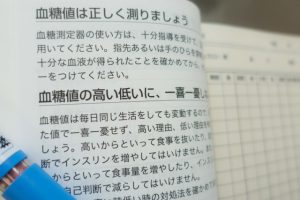 血糖値は正しく測りましょう
血糖測定器の使い方は、十分指導を受けて
用いてください。指先あるいは手のひらを
十分な血液が得られたことを確かめてから、
ーをつけてください。
血糖値の高い低いに、一喜一憂し
血糖値は毎日同じ生活をしても変動するので、
た値で一喜一憂せず、高い理由、低い理由を
しょう。高いからといって食事を抜いたり、
断でインスリンを増やしてはいけません。
いからといって食事量を増やしたり、イン
自己判断で減らしてはいけません。
低い時の対処法を確かめて